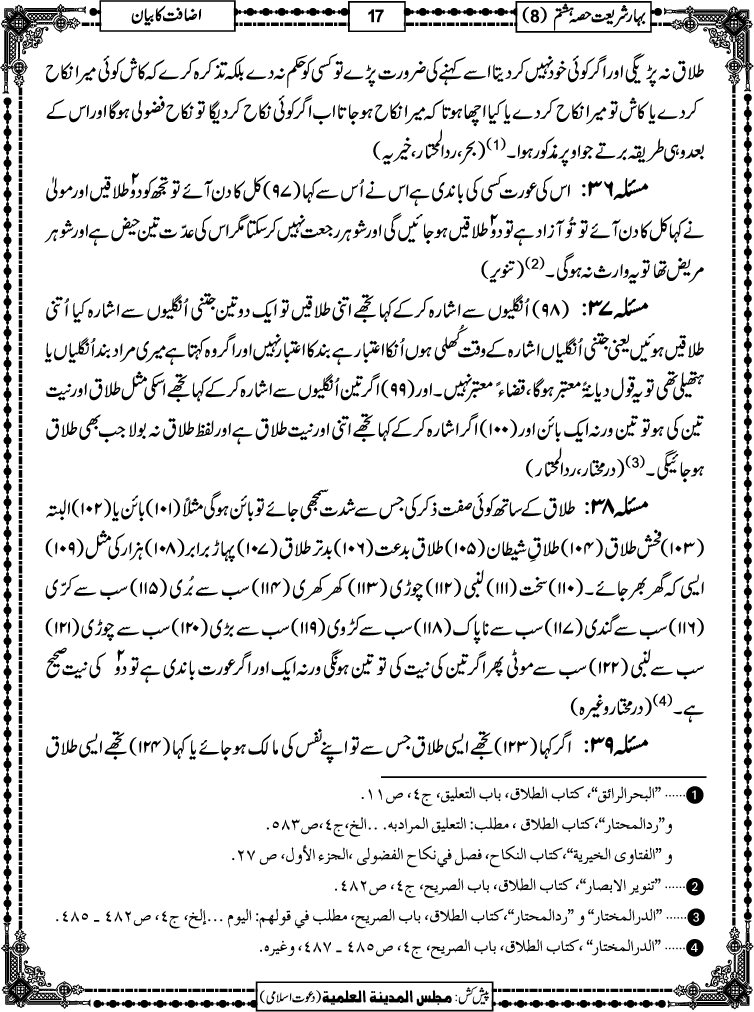 بہارِ شریعت حصہ ہشتم (8)
17
اضافت کا بیان
طلاق نہ پڑیگی اور اگر کوئی خود نہیں کر دیتا اسے کہنے کی ضرورت پڑے تو کسی کو حکم نہ دے بلکہ تذکرہ کرے کہ کاش کوئی میرا نکاح
کر دے یا کاش تو میرا نکاح کر دے یا کیا اچھا ہوتا کہ میرا نکاح ہو جاتا اب اگر کوئی نکاح کر دیگا تو نکاح فضولی ہوگا اور اس کے
بعد وہی طریقہ برتے جو اوپر مذکور ہوا۔(1) (بحر، ردالمحتار، خیریہ)
مسئلہ ۳۶: اس کی عورت کسی کی باندی ہے اس نے اُس سے کہا (۹۷) کل کا دن آئے تو تجھ کو دو۲ طلاقیں اور مولیٰ
نے کہا کل کا دن آئے تو تُو آزاد ہے تو دو۲ طلاقیں ہو جائیں گی اور شوہر رجعت نہیں کر سکتا مگر اس کی عدّت تین حیض ہے اور شوہر
مریض تھا تو یہ وارث نہ ہوگی۔(2) (تنویر)
مسئلہ ۳۷: (۹۸) اُنگلیوں سے اشارہ کر کے کہا تجھے اتنی طلاقیں تو ایک دو تین جتنی اُنگلیوں سے اشارہ کیا اُتنی
طلاقیں ہوئیں یعنی جتنی اُنگلیاں اشارہ کے وقت کُھلی ہوں اُنکا اعتبار ہے بند کا اعتبار نہیں اور اگر وہ کہتا ہے میری مراد بند اُنگلیاں یا
ہتھیلی تھی تو یہ قول دیانۃً معتبر ہوگا، قضاءً معتبر نہیں۔ اور (۹۹) اگر تین اُنگلیوں سے اشارہ کر کے کہا تجھے اسکی مثل طلاق اور نیت
تین کی ہو تو تین ورنہ ایک بائن اور (۱۰۰) اگر اشارہ کر کے کہا تجھے اتنی اور نیت طلاق ہے اور لفظ طلاق نہ بولا جب بھی طلاق
ہو جائیگی۔(3) (درمختار، ردالمحتار)
مسئلہ ۳۸: طلاق کے ساتھ کوئی صفت ذکر کی جس سے شدت سمجھی جائے تو بائن ہوگی مثلاً (۱۰۱) بائن یا (۱۰۲) البتہ
(۱۰۳) فحش طلاق (۱۰۴) طلاقِ شیطان (۱۰۵) طلاق بدعت (۱۰۶) بدتر طلاق (۱۰۷) پہاڑ برابر (۱۰۸) ہزار کی مثل (۱۰۹)
ایسی کہ گھر بھر جائے۔ (۱۱۰) سخت (۱۱۱) لنبی (۱۱۲) چوڑی (۱۱۳) کھر کھری (۱۱۴) سب سے بُری (۱۱۵) سب سے کرّی
(۱۱۶) سب سے گندی (۱۱۷) سب سے ناپاک (۱۱۸) سب سے کڑوی (۱۱۹) سب سے بڑی (۱۲۰) سب سے چوڑی (۱۲۱)
سب سے لنبی (۱۲۲) سب سے موٹی پھر اگر تین کی نیت کی تو تین ہونگی ورنہ ایک اور اگر عورت باندی ہے تو دو۲ کی نیت صحیح
ہے۔(4) (درمختار وغیرہ)
مسئلہ ۳۹: اگر کہا (۱۲۳) تجھے ایسی طلاق جس سے تو اپنے نفس کی مالک ہو جائے یا کہا (۱۲۴) تجھے ایسی طلاق
1 ...... ”البحر الرائق“، کتاب الطلاق، باب التعلیق، ج٤، ص١١.
و ”ردالمحتار“، کتاب الطلاق، مطلب: التعلیق المرادبه...الخ، ج٤، ص٥٨٣.
و ”الفتاوی الخیریة“، کتاب النکاح، فصل في نکاح الفضولی، الجزء الأول، ص ٢٧.
2 ...... ”تنویر الابصار“، کتاب الطلاق، باب الصریح، ج٤، ص٤٨٢.
3 ...... ”الدرالمختار“ و ”ردالمحتار“، کتاب الطلاق، باب الصریح، مطلب في قولهم: الیوم ...إلخ، ج٤، ص٤٨٢ ـ ٤٨٥.
4 ...... ”الدرالمختار“، کتاب الطلاق، باب الصریح، ج٤، ص٤٨٥ ـ ٤٨٧، وغیره.
پیش کش: مجلس المدینة العلمیة (دعوت اسلامی)